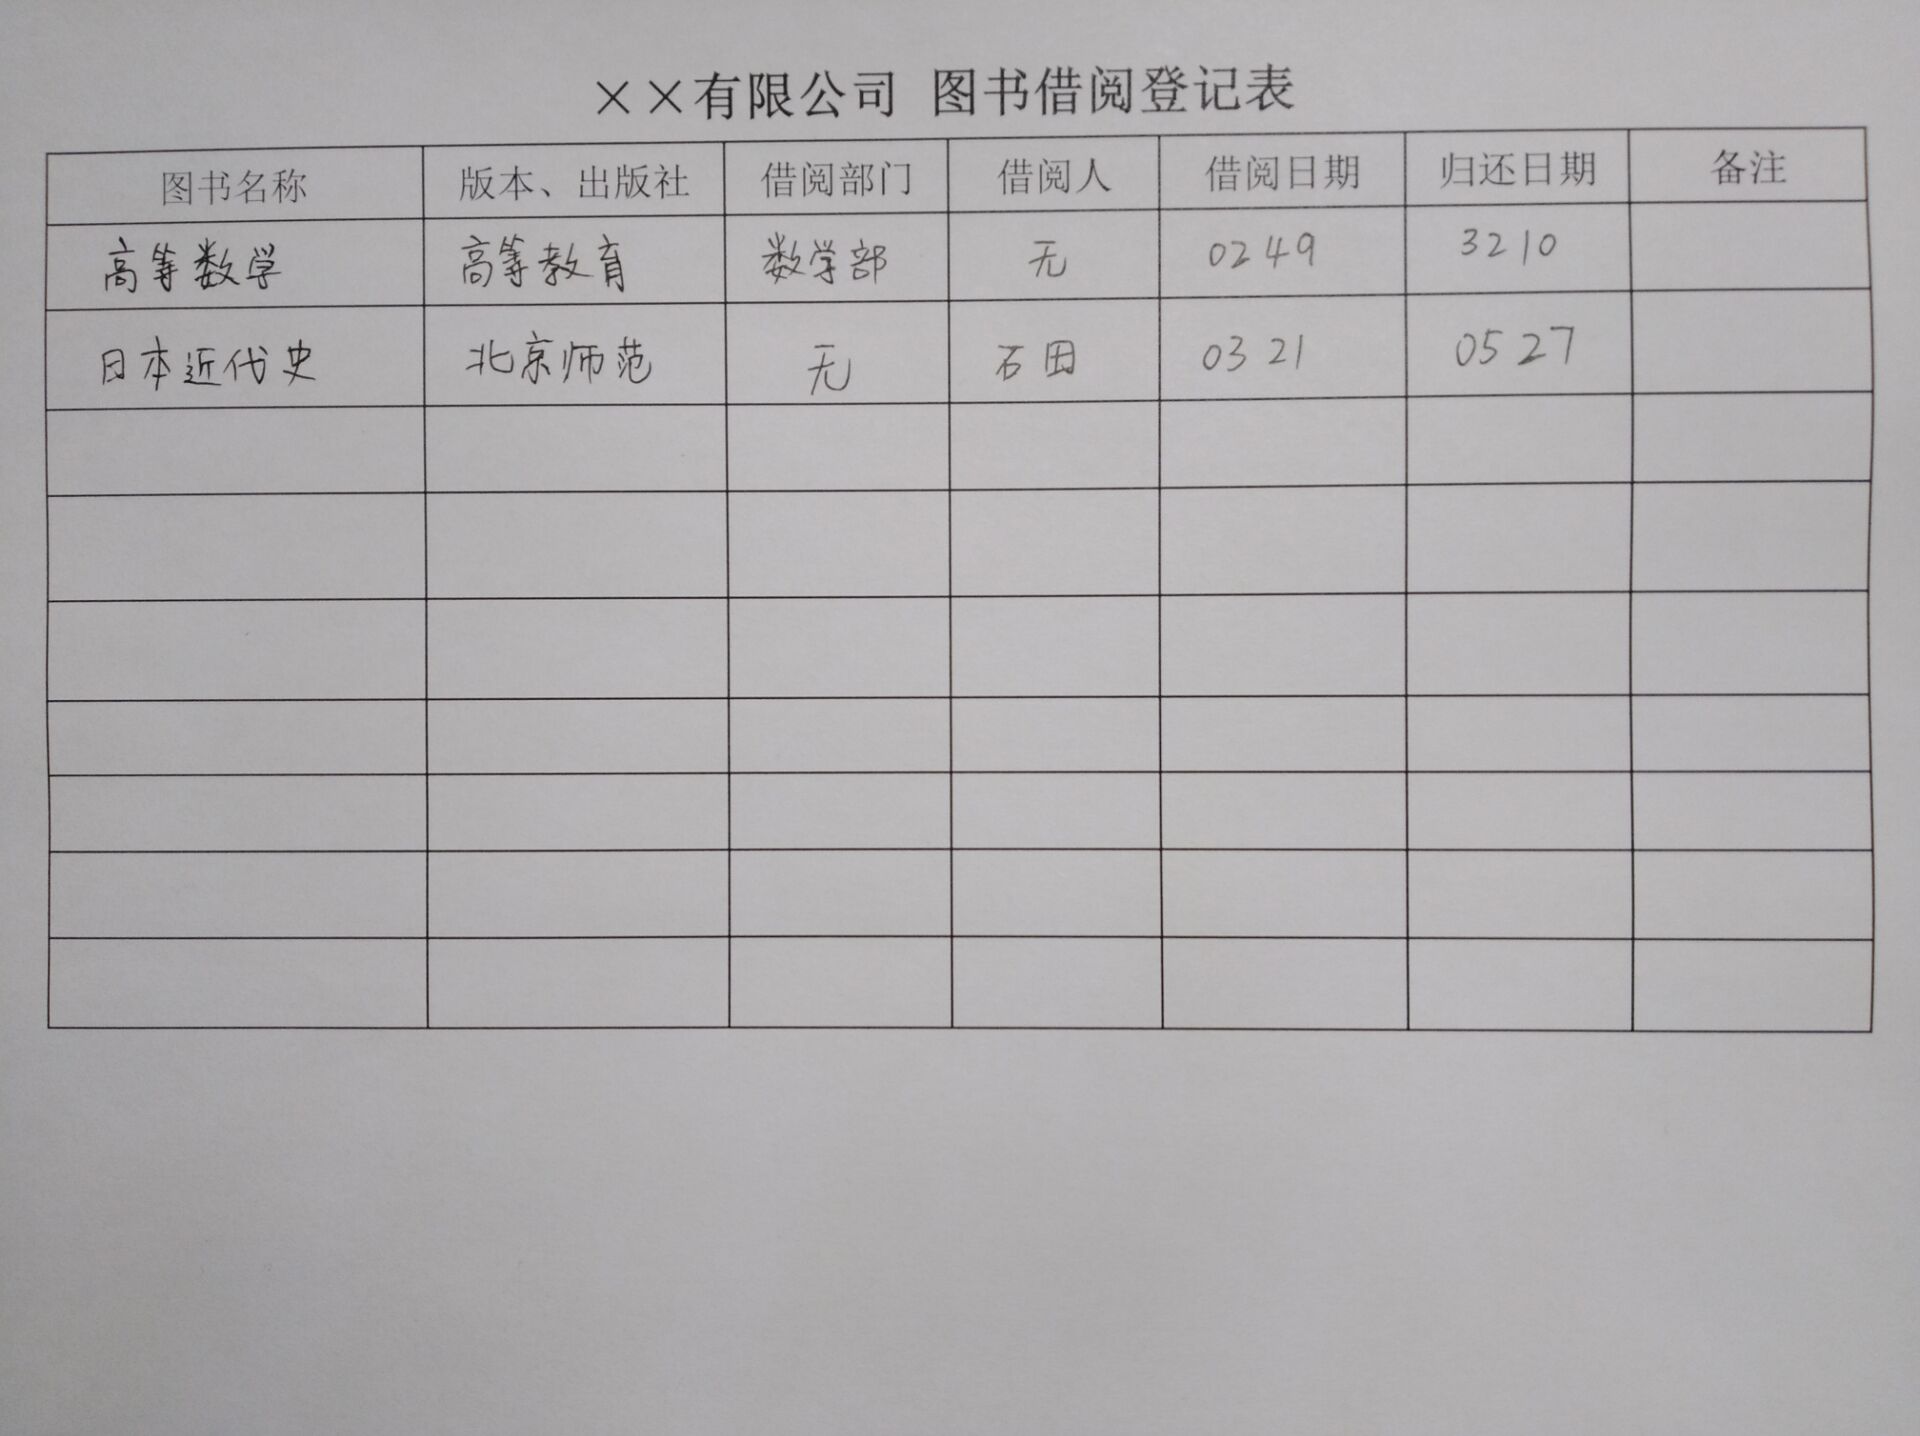 ××有限公司 图书借阅登记表
图书名称 版本、出版社 借阅部门 借阅人 借阅日期 归还日期 备注
高等数学 高等教育 数学部 无 0249 3210
日本近代史 北京师范 无 石田 0321 0527